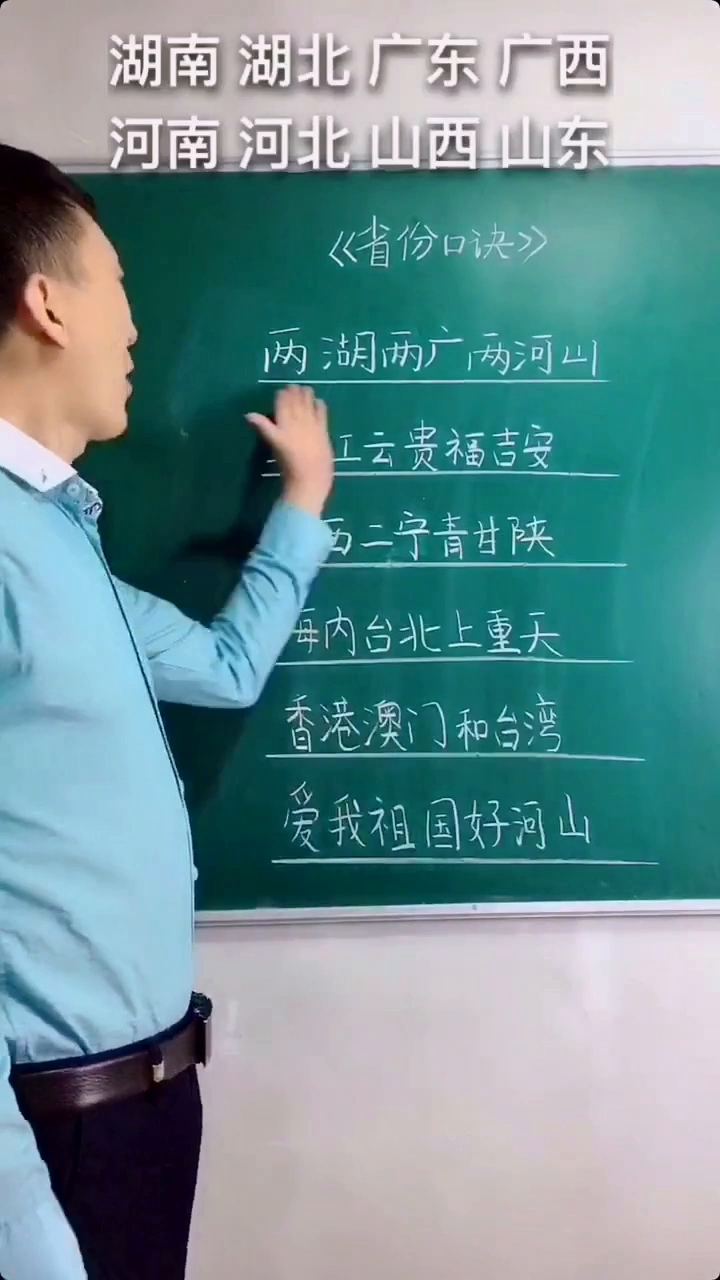 湖南 湖北 广东 广西
河南 河北 山西 山东
《省份口诀》
两湖两广两河山
江云贵福吉安
西二宁青甘陕
海内台北上重天
香港澳门和台湾
爱我祖国好河山